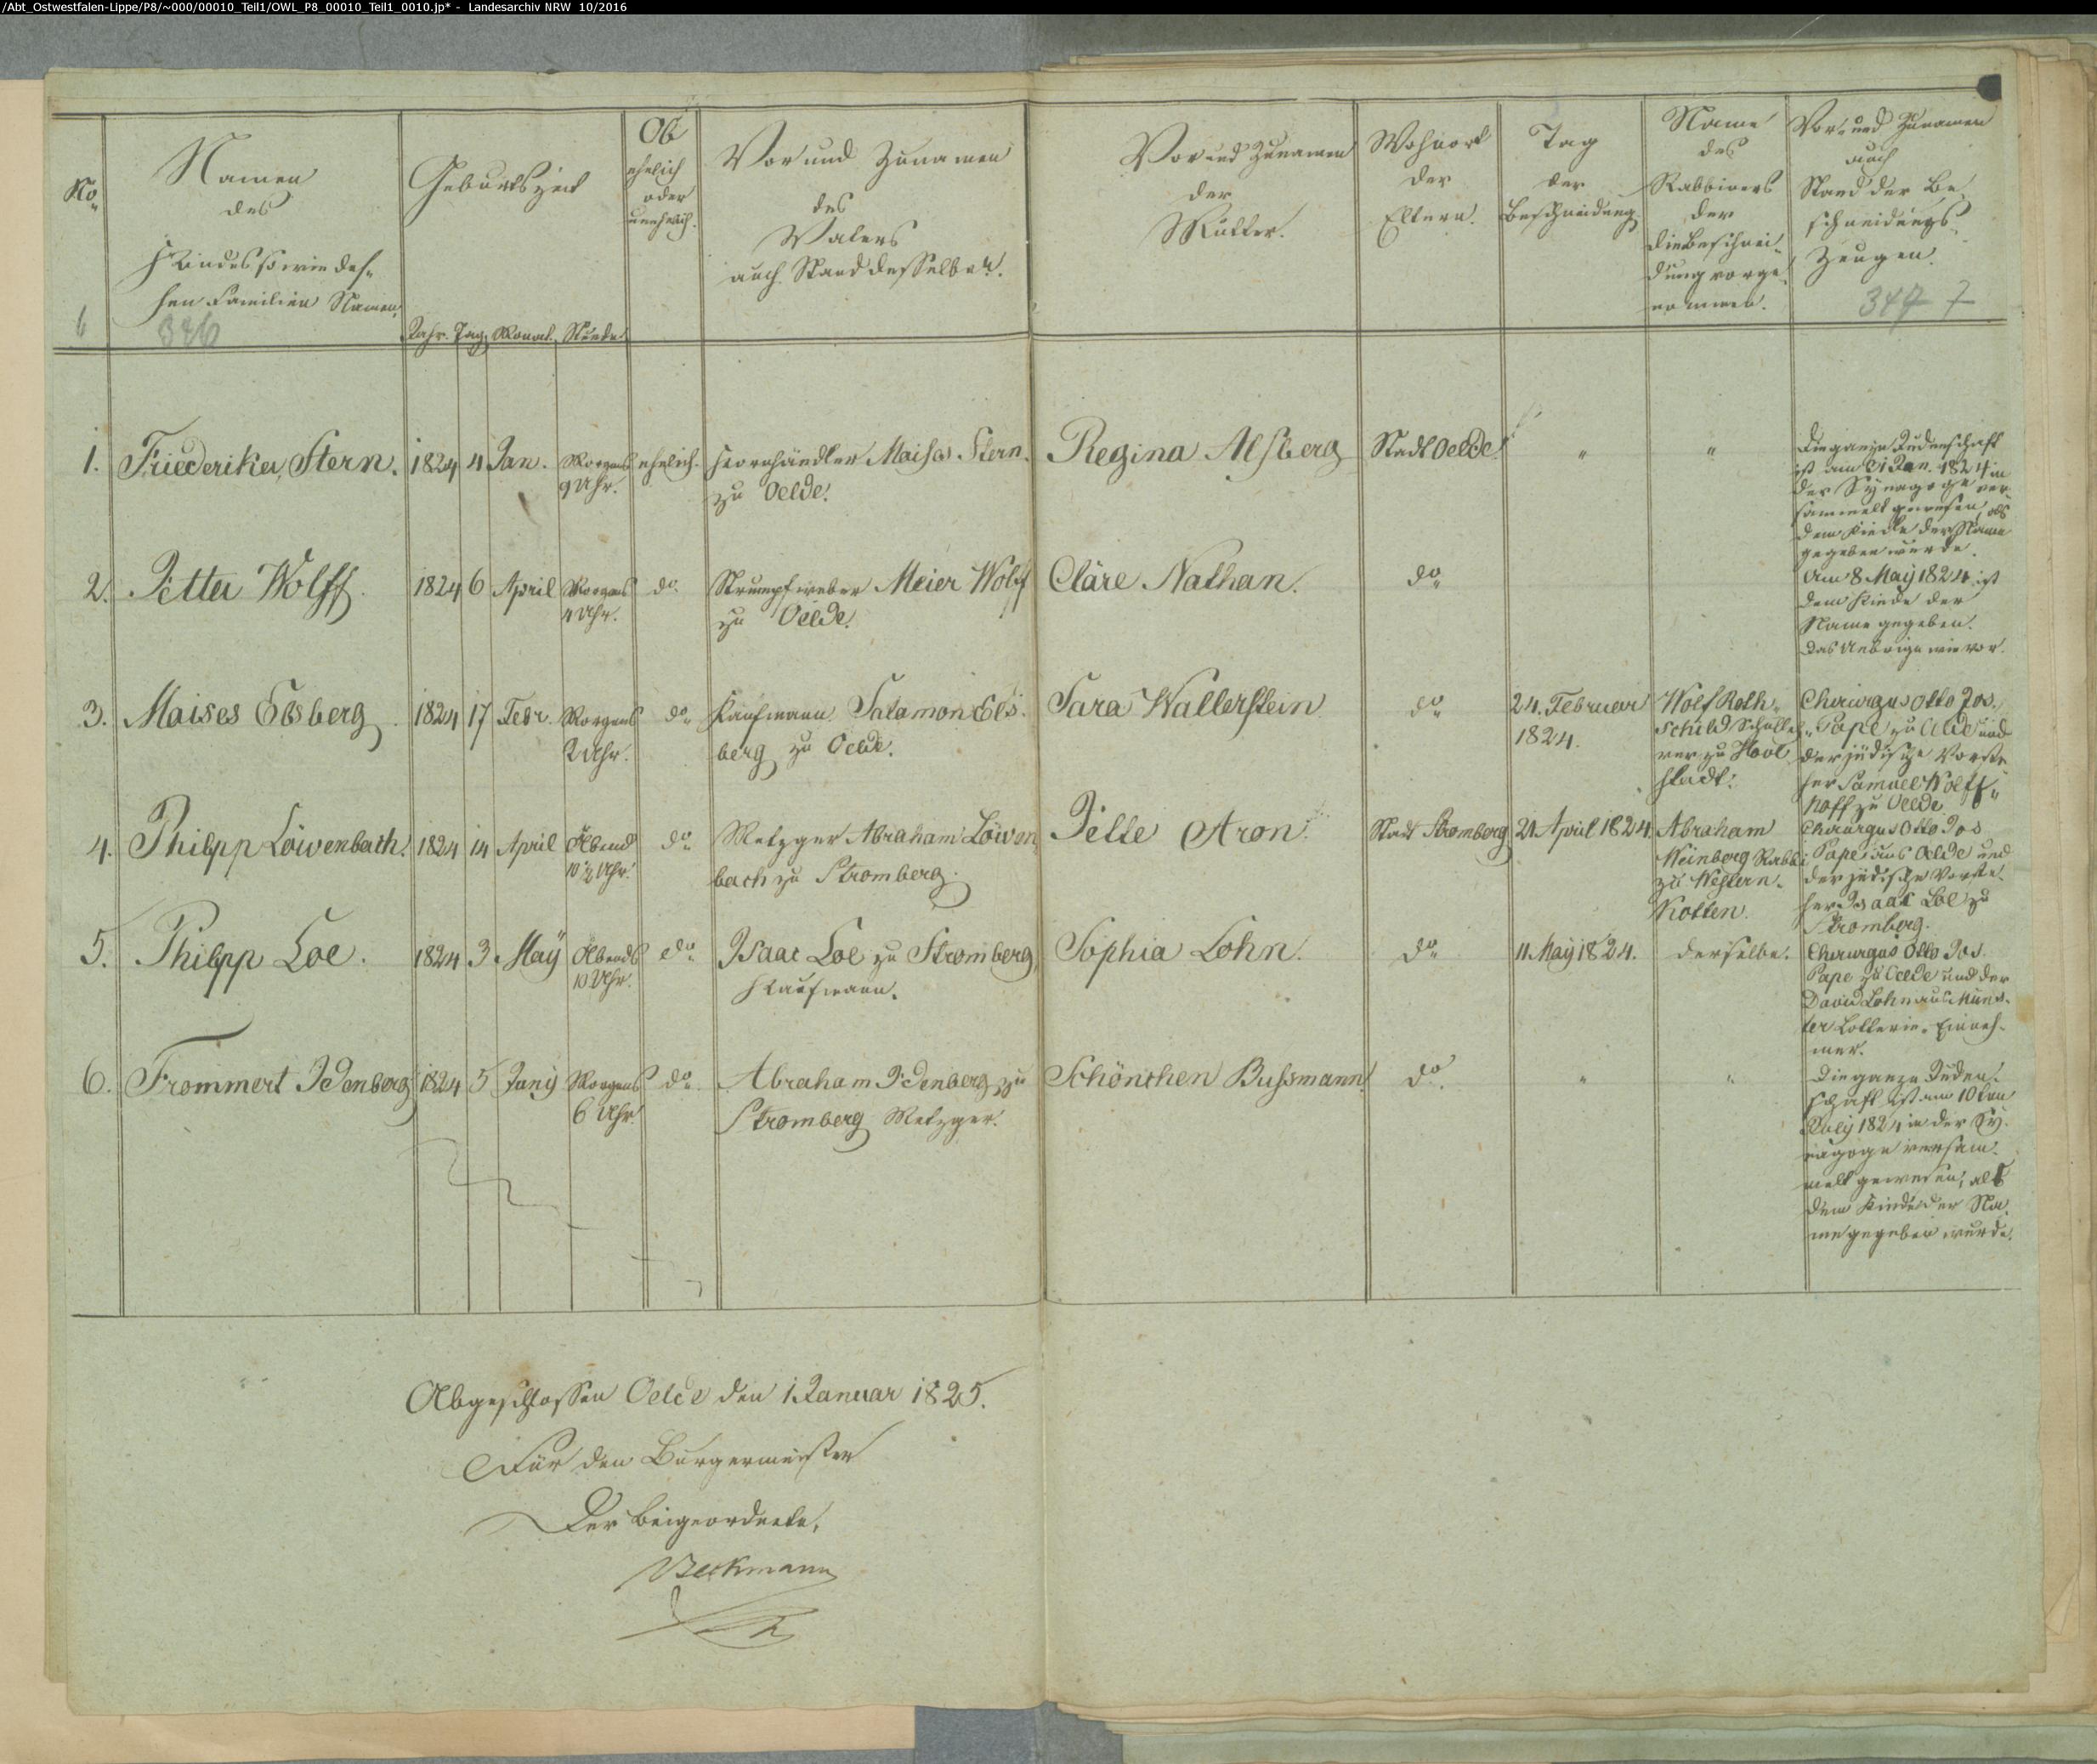 /Abt_Ostwestfalen-Lippe/P8/~000/00010_Teil1/OWL_P8_00010_Teil1_0010.jp* - Landesarchiv NRW 10/2016
No
Namen
des
Kindes so wie des-
sen Familien Namen
6
346
Geburtszeit
Jahr. Tag. Monat. Stunde
Ob
ehelich
oder
unehelich.
Vor und Zunamen
des
Vaters
auch Stand desselben.
Vor und Zunamen
der
Mutter.
Wohnort
der
Eltern.
Tag
der
Beschneidung
Name
des
Rabbiners
der
die Beschnei-
dung vorge-
nommen.
Vor- und Zunamen
auch
Stand der Be
schneidungs-
Zeugen.
347 7
1. Friederika, Stern. 1824 4 Jan. Morgens ehelich. Kornhändler Maises Stern. Regina Alsberg Stadt Oelde " "
9 Uhr.
zu Oelde.
Die ganze Judenschaft
ist am 31 Jan. 1824 in
der Synagoge ver-
sammelt gewesen, als
dem Kinde der Name
gegeben wurde.
2. Jetta Wolff. 1824 6 April Morgens do. Strumpfweber Meier Wolff Cläre Nathan. do
4 Uhr.
zu Oelde.
Am 8 Maÿ 1824 ist
dem Kinde der
Name gegeben.
Das Uebrige wie vor.
3. Maises Elsberg. 1824 17 Febr. Morgens do Kaufmann Salamon Els- Sara Wallerstein do 24. Februar
2 Uhr.
berg zu Oelde.
1824.
Wolf Roth-
schild Schulleh-
rer zu
stadt.
Chirurgus Otto Jos.
Pape zu Oelde und
der jüdische Vorste
her Samuel Wolff-
hoff zu Oelde
4. Philipp Löwenbach. 1824 14 April Abend do Metzger Abraham Löwen Jette Aron. Stadt Stromberg 21 April 1824
10 ½ Uhr.
bach zu Stromberg.
Abraham
Weinberg Rabbi
zu Western-
Kotten.
Chirurgus Otto Jos
Pape aus Oelde und
der jüdische Vorste-
her Isaac Loe zu
Stromberg.
5. Philipp Loe. 1824 3 Maÿ Abends do Isaac Loe zu Stromberg Sophia Lohn. do 11 Maÿ 1824. derselbe.
10 Uhr.
Kaufmann.
Chirurgus Otto Jos.
Pape zu Oelde und der
David Lohn aus Müns-
ter Lotterie-Einneh-
mer.
6. Frommert Idenberg 1824 5 Junÿ Morgens do Abraham Idenberg zu Schönchen Bussmann do. " "
6 Uhr.
Stromberg Metzger.
Die ganze Juden-
schaft ist am 10ten
Julÿ 1824 in der Sÿ-
nagoge versam-
melt gewesen, als
dem Kinde der Na-
me gegeben wurde.
Abgeschlossen Oelde den 1 Januar 1825.
Für den Bürgermeister
Der Beigeordnete,
Beckmann